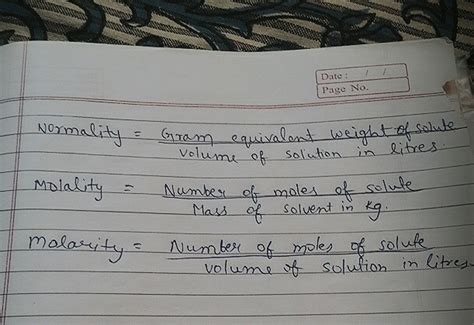 Date: / /
Page No.
Normality = Gram equivalent weight of solute
Volume of solution in litres.
Molality = Number of moles of solute
Mass of solvent in kg.
Molarity = Number of moles of solute
Volume of solution in litres.